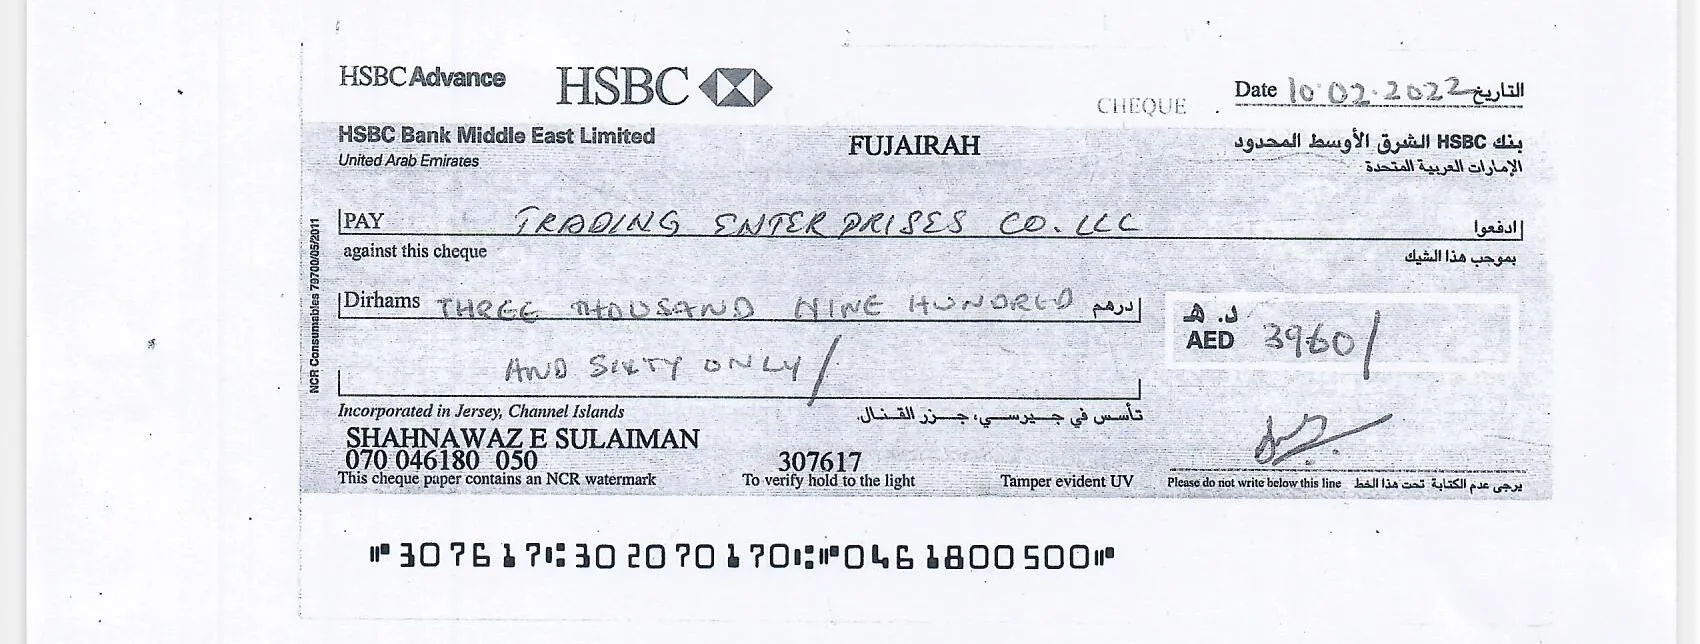 HSBC Advance HSBC
CHEQUE
Date 10.02.2022 التاريخ
HSBC Bank Middle East Limited
United Arab Emirates
FUJAIRAH
بنك HSBC الشرق الأوسط المحدود
الإمارات العربية المتحدة
PAY TRADING ENTERPRISES CO. LLC ادفعوا
against this cheque بموجب هذا الشيك
Dirhams THREE THOUSAND NINE HUNDRED درهم
AND SIXTY ONLY/
د. هـ
AED 3960/
NCR Consumables 79700/05/2011
Incorporated in Jersey, Channel Islands تأسس في جيرسي، جزر القنال.
SHAHNAWAZ E SULAIMAN
070 046180 050 307617
This cheque paper contains an NCR watermark To verify hold to the light Tamper evident UV Please do not write below this line يرجى عدم الكتابة تحت هذا الخط
⑈307617⑆302070170⑆⑈0461800500⑈